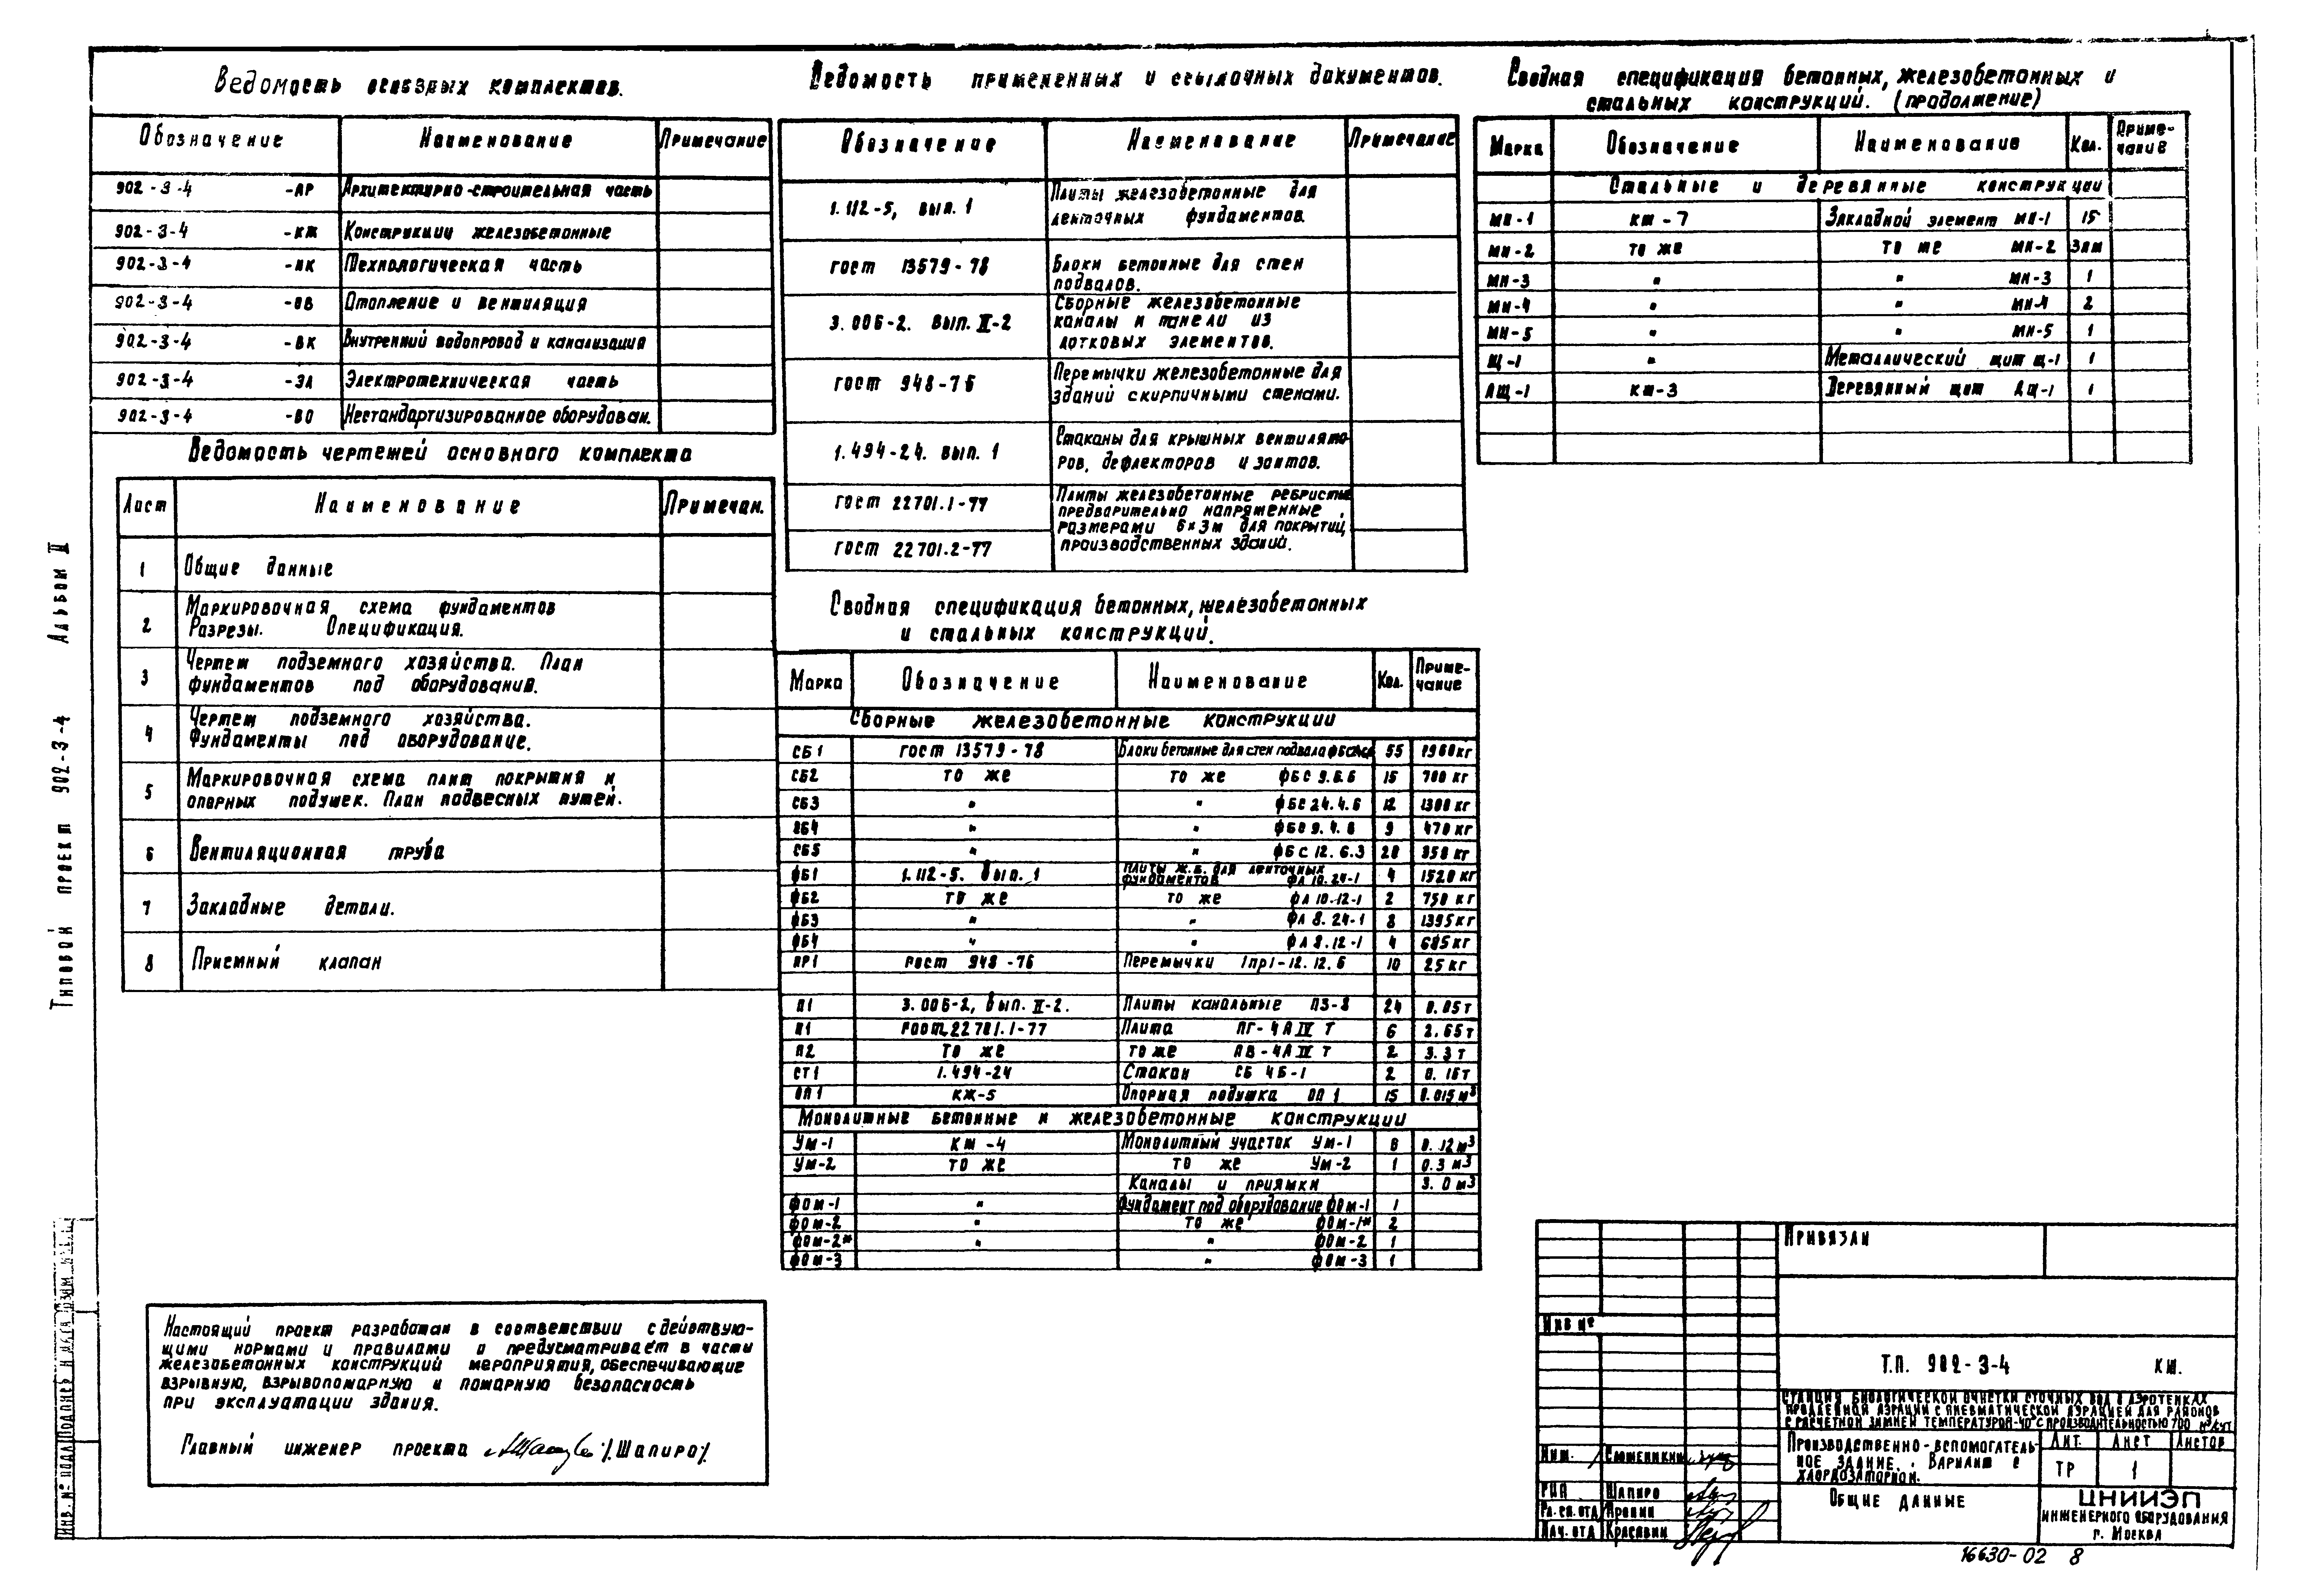 Ведомость основных комплектов.
Обозначение Наименование Примечание
902-3-4 -АР Архитектурно-строительная часть
902-3-4 -КЖ Конструкции железобетонные
902-3-4 -НК Технологическая часть
902-3-4 -ОВ Отопление и вентиляция
902-3-4 -ВК Внутренний водопровод и канализация
902-3-4 -ЭЛ Электротехническая часть
902-3-4 -ВО Нестандартизированное оборудован.
Ведомость чертежей основного комплекта
Лист Наименование Примечан.
1 Общие данные
2 Маркировочная схема фундаментов
Разрезы. Спецификация.
3 Чертеж подземного хозяйства. План
фундаментов под оборудования.
4 Чертеж подземного хозяйства.
Фундаменты под оборудование.
5 Маркировочная схема плит покрытия и
опорных подушек. План подвесных путей.
6 Вентиляционная труба
7 Закладные детали.
8 Приемный клапан
Настоящий проект разработан в соответствии с действую-
щими нормами и правилами и предусматривает в части
железобетонных конструкций мероприятия, обеспечивающие
взрывную, взрывопожарную и пожарную безопасность
при эксплуатации здания.
Главный инженер проекта /Шапиро/
Ведомость примененных и ссылочных документов.
Обозначение Наименование Примечание
1.112-5, вып. 1 Плиты железобетонные для
ленточных фундаментов.
гост 13579-78 Блоки бетонные для стен
подвалов.
3.006-2. Вып. II-2 Сборные железобетонные
каналы и панели из
лотковых элементов.
гост 948-76 Перемычки железобетонные для
зданий с кирпичными стенами.
1.494-24. вып. 1 Стаканы для крышных вентилято-
ров, дефлекторов и зонтов.
гост 22701.1-77 Плиты железобетонные ребристые
предварительно напряженные,
размерами 6×3м для покрытий
гост 22701.2-77 производственных зданий.
Сводная спецификация бетонных, железобетонных
и стальных конструкций.
Марка Обозначение Наименование Кол. Приме-
чание
Сборные железобетонные конструкции
СБ1 гост 13579-78 Блоки бетонные для стен подвала 55 1960кг
СБ2 то же то же ФБС 9.6.6 15 700 кг
СБ3 " " ФБС 24.4.6 12 1300 кг
СБ4 " " ФБС 9.4.6 9 470 кг
СБ5 " " ФБС 12.6.3 20
ФБ1 1.112-5. Вып. 1 Плиты ж.б. для ленточных
фундаментов ФЛ 10.24-1 4 1520 кг
ФБ2 то же то же ФЛ 10-12-1 2 750 кг
ФБ3 " " ФЛ 8.24-1 8 1395 кг
ФБ4 " " ФЛ 8.12-1 4 685 кг
ПР1 гост 948-76 Перемычки 1пр1-12.12.6 10 25 кг
П1 3.006-2, Вып. II-2. Плиты канальные П3-8 24 0.05 т
П1 гост 22701.1-77 Плита ПГ-4АIV Т 6 2.65 т
П2 То же то же ПВ-4АIV Т 2 3.3 т
СТ1 1.494-24 Стакан СБ 4Б-1 2 0.16т
ОП1 КЖ-5 Опорная подушка ОП 1 15 0.015 м³
Монолитные бетонные и железобетонные конструкции
Ум-1 КЖ-4 Монолитный участок Ум-1 6 0.12 м³
Ум-2 то же то же Ум-2 1 0.3 м³
Каналы и приямки 3.0 м³
ФОМ-1 " Фундамент под оборудование ФОМ-1 1
ФОМ-2 " то же ФОМ-1* 2
ФОМ-2* " " ФОМ-2 1
ФОМ-3 " ФОМ-3 1
Сводная спецификация бетонных, железобетонных и
стальных конструкций. (продолжение)
Марка Обозначение Наименование Кол. Приме-
чание
Стальные и деревянные конструкции
МН-1 КЖ-7 Закладной элемент МН-1 15
МН-2 то же то же МН-2 3пм
МН-3 " " МН-3 1
МН-4 " " МН-4 2
МН-5 " " МН-5 1
Щ-1 " Металлический щит Щ-1 1
ДЩ-1 КЖ-3 Деревянный щит ДЩ-1 1
Привязан
Инв №
Т.П. 902-3-4 КЖ.
Станция биологической очистки сточных вод в аэротенках
продленной аэрации с пневматической аэрацией для районов
с расчетной зимней температурой -40°С производительностью 700 м³/сут
Производственно-вспомогатель-
ное здание. Вариант с
хлордозаторной.
Лит. Лист Листов
ТР 1
Общие данные
ЦНИИЭП
инженерного оборудования
г. Москва
Инж.
ГИП Шапиро
Гл.сп.отд Пронин
Нач.отд Красавин
16630-02 8
Типовой проект 902-3-4 Альбом II
Инв. № подл. Подпись и дата Взам. инв.